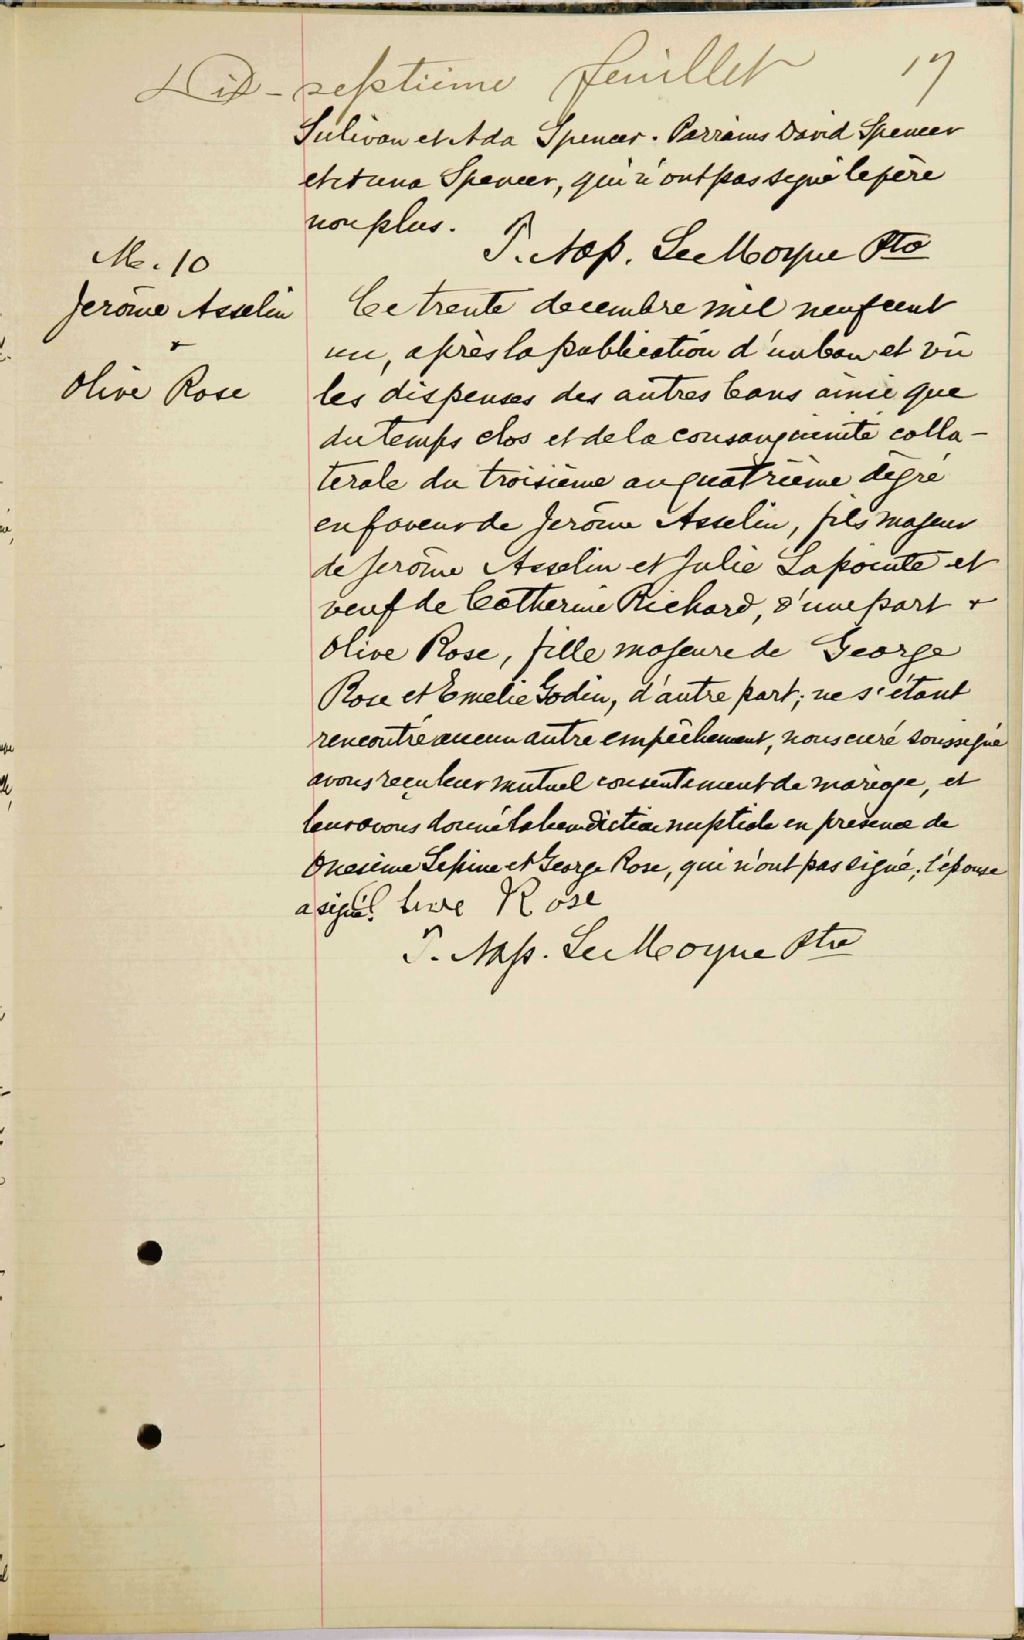 Dix-septième feuillet 17
Sulivan et Ada Spencer. Parrains David Spencer
et Spencer, qui n'ont pas signé le père
non plus.
P. Nap. LeMoyne Ptre
M. 10
Jerôme Asselin
+
Olive Rose
Ce trente decembre mil neuf cent
un, après la publication d'un ban et vû
les dispenses des autres bans ainsi que
du temps clos et de la consanguinité colla-
terale du troisième au quatrième dégré
en faveur de Jerôme Asselin, fils majeur
de Jerôme Asselin et Julie Lapointe et
veuf de Catherine Richard, d'une part +
Olive Rose, fille majeure de George
Rose et Emelie Godin, d'autre part; ne s'étant
rencontré aucun autre empêchement, nous curé soussigné
avons reçu leur mutuel consentement de mariage, et
leur avons donné la benediction nuptiale en présence de
Onesime Lepine et George Rose, qui n'ont pas signé; l'épouse
a signé. Olive Rose
P. Nap. LeMoyne Ptre